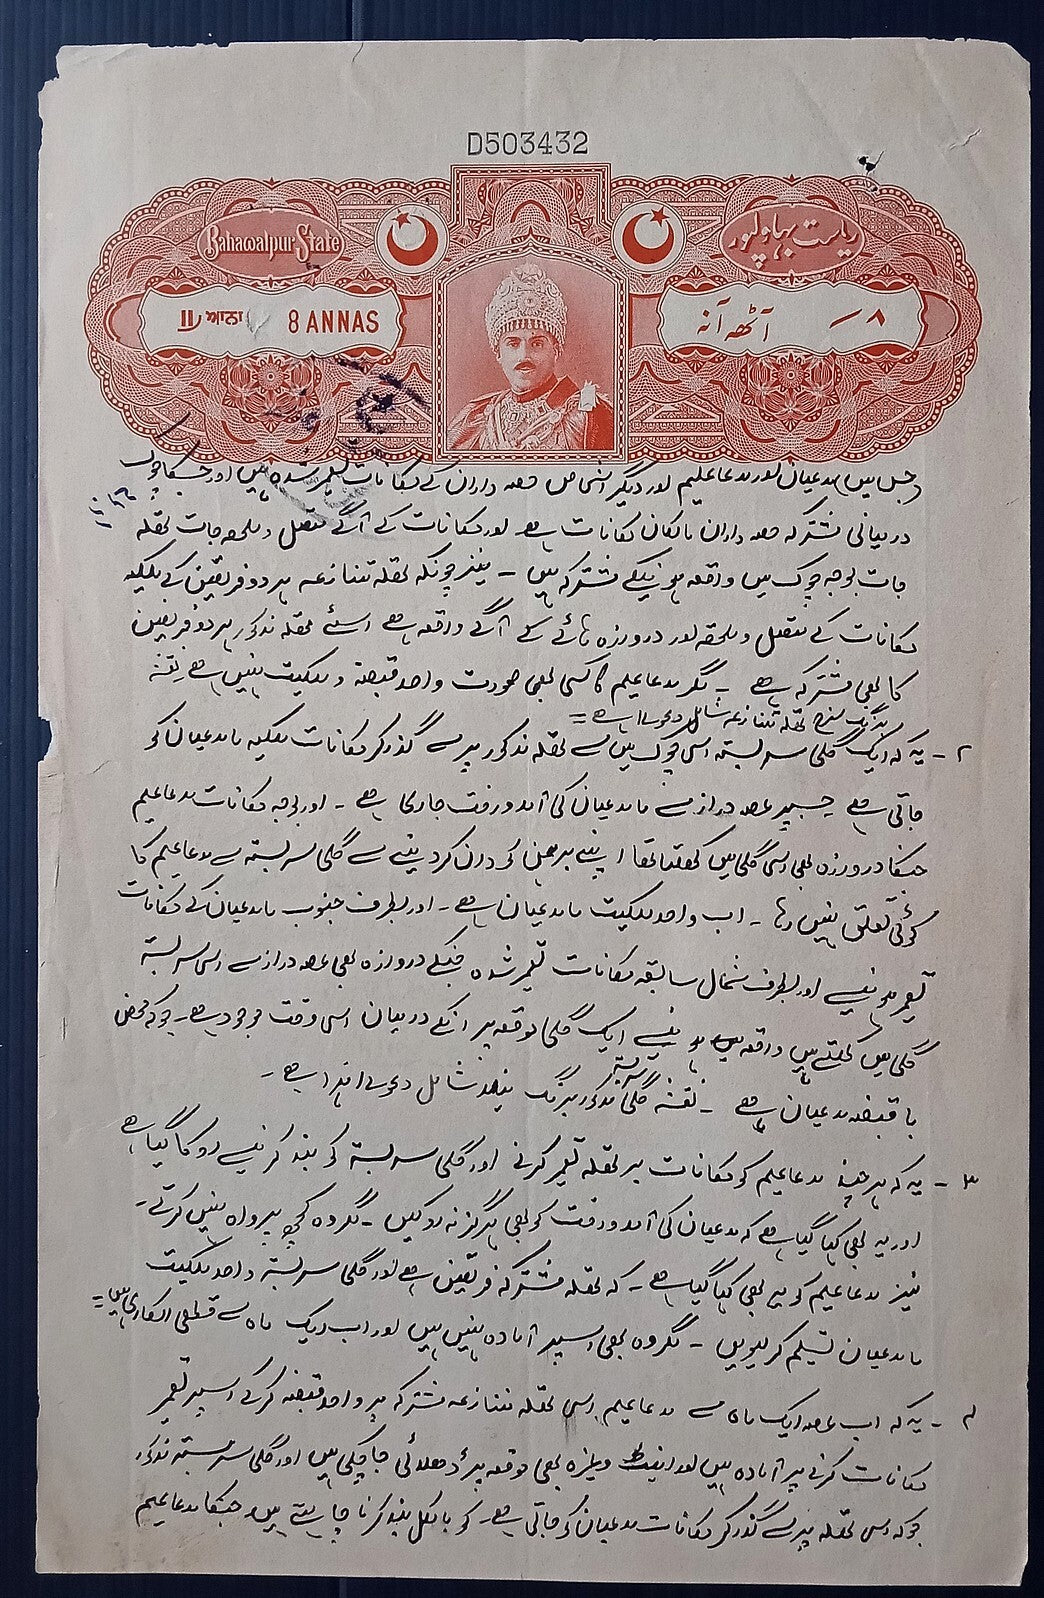 D503432
Bahawalpur State
ریاست بہاولپور
8 ANNAS
آٹھ آنہ ۸
(جس میں) مدعیان اور مدعاعلیہم اور دیگر اشخاص حصہ داران کے مکانات تعمیر شدہ ہیں اور جسکا چوک
درمیانی مشترکہ حصہ داران مالکان مکانات ہے اور مکانات کے آگے متصل و ملحقہ جات تھلہ
جات بوجہ چوک میں واقعہ ہونیکے مشترکہ ہیں - نیز چونکہ تھلہ متنازعہ ہر دو فریقین کے ملکیہ
مکانات کے متصل و ملحقہ اور دروازہ ہائے کے آگے واقعہ ہے اسلئے تھلہ مذکور ہر دو فریقین
کا بھی مشترکہ ہے - مگر مدعاعلیہم کا کسی بھی صورت واحد قبضہ و ملکیت نہیں ہے نقشہ
برنگ سرخ تھلہ متنازعہ شامل دعویٰ ہے =
۲ - یہ کہ ایک گلی سربستہ اسی چوک میں سے تھلہ مذکور پر سے گذر کر مکانات ملکیہ مامدعیان کو
جاتی ہے جسپر عرصہ دراز سے مامدعیان کی آمدورفت جاری ہے - اور بوجہ مکانات مدعاعلیہم
جنکا دروازہ بھی اسی گلی میں کھلتا تھا اپنے کر دینے سے گلی سربستہ سے مدعاعلیہم کا
کوئی تعلق نہیں رہا - اب واحد ملکیت مامدعیان ہے - اور بطرف جنوب مامدعیان کے مکانات
تعمیر ہونیسے اور بطرف شمال سابقہ مکانات تعمیر شدہ جنکے دروازہ بھی عرصہ دراز سے اسی سربستہ
گلی میں کھلتے ہیں واقعہ ہونیسے ایک گلی موقعہ پر انکے درمیان اسی وقت موجود ہے - جو کہ محض
باقبضہ مدعیان ہے - نقشہ گلی سربستہ مذکور برنگ شامل دعویٰ ہذا ہے -
۳ - یہ کہ ہرچند مدعاعلیہم کو مکانات بر تھلہ تعمیر کرنے اور گلی سربستہ کو بند کرنیسے روکا گیا ہے
اور یہ بھی کہا گیا ہے کہ مدعیان کی آمدورفت کو بھی ہرگز نہ روکیں - مگر وہ کچھ پرواہ نہیں کرتے -
نیز مدعاعلیہم کو یہ بھی کہا گیا ہے - کہ تھلہ مشترکہ فریقین ہے اور گلی سربستہ واحد ملکیت
مامدعیان تسلیم کر لیویں - مگر وہ بھی اسپر آمادہ نہیں ہیں اور اب ایک ماہ سے قطعی انکاری ہیں =
۴ - یہ کہ اب عرصہ ایک ماہ سے مدعاعلیہم اسی تھلہ متنازعہ مشترکہ پر واحد قبضہ کرکے اسپر تعمیر
مکانات کرنے پر آمادہ ہیں اور اینٹ وغیرہ بھی موقعہ پر ڈھلائی جا چکی ہیں اور گلی سربستہ مذکور
جو کہ اسی تھلہ پر سے گذر کر مکانات مدعیان کو جاتی ہے - کو بالکل بند کرنا چاہتے ہیں جنکا مدعاعلیہم